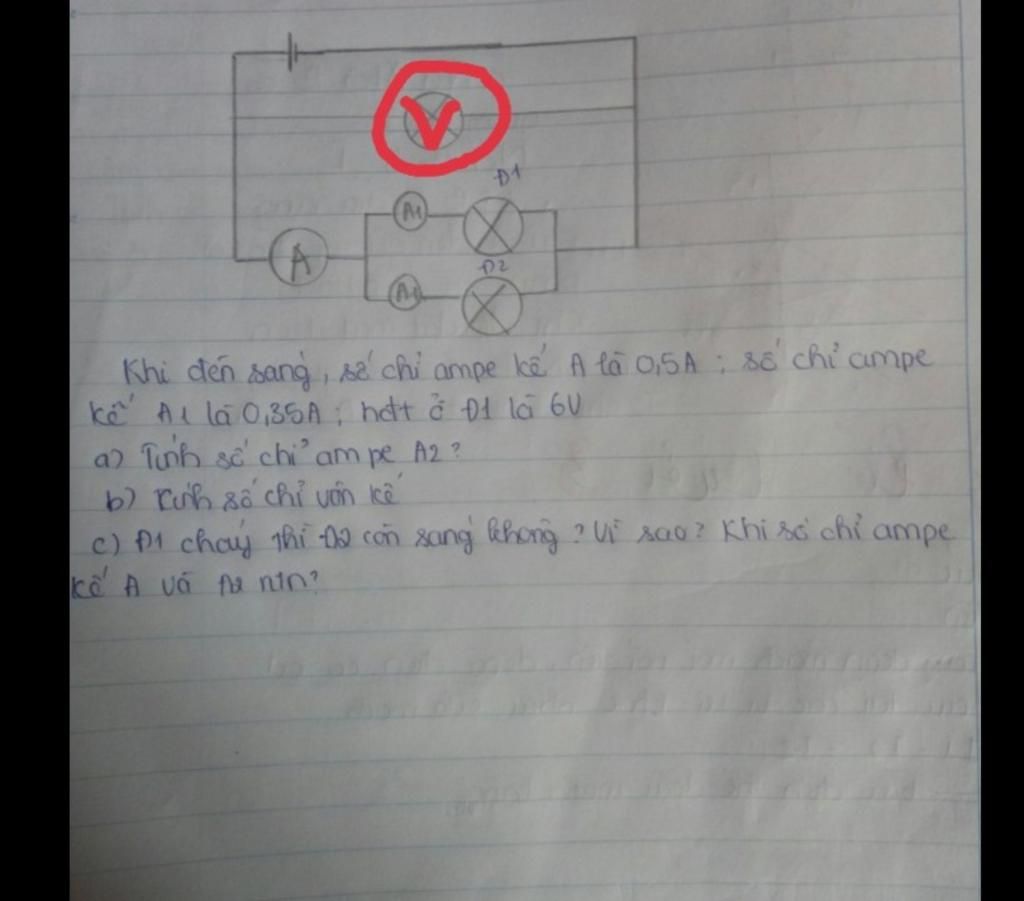 V
Đ1
A1
A
Đ2
A2
Khi đèn sáng, số chỉ ampe kế A là 0,5A; số chỉ ampe
kế A1 là 0,35A; hđt ở Đ1 là 6V
a) Tính số chỉ ampe A2?
b) Tính số chỉ vôn kế
c) Đ1 cháy thì Đ2 còn sáng không? Vì sao? Khi số chỉ ampe
kế A và A2 ntn?